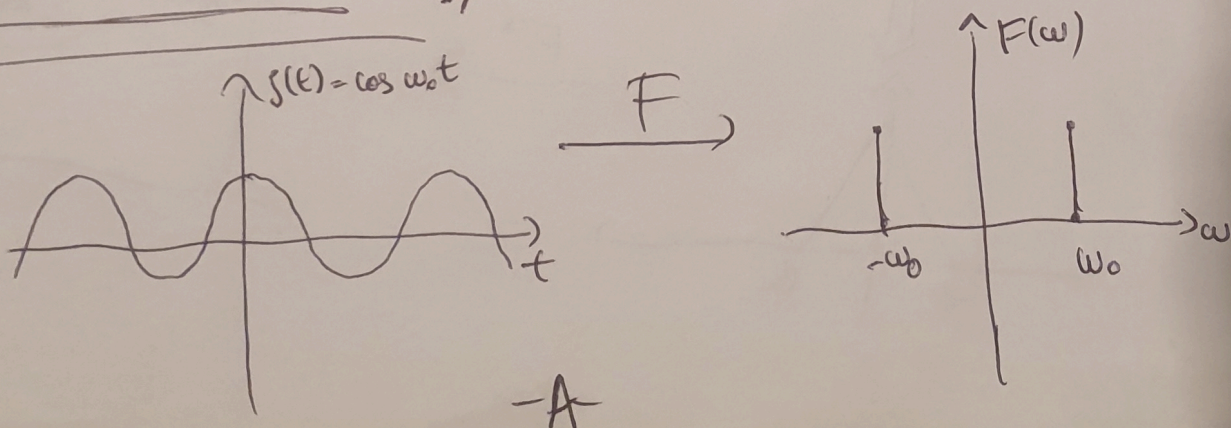 f(t) = cos ω₀t
F
F(ω)
t
-ω₀
ω₀
ω
-A-